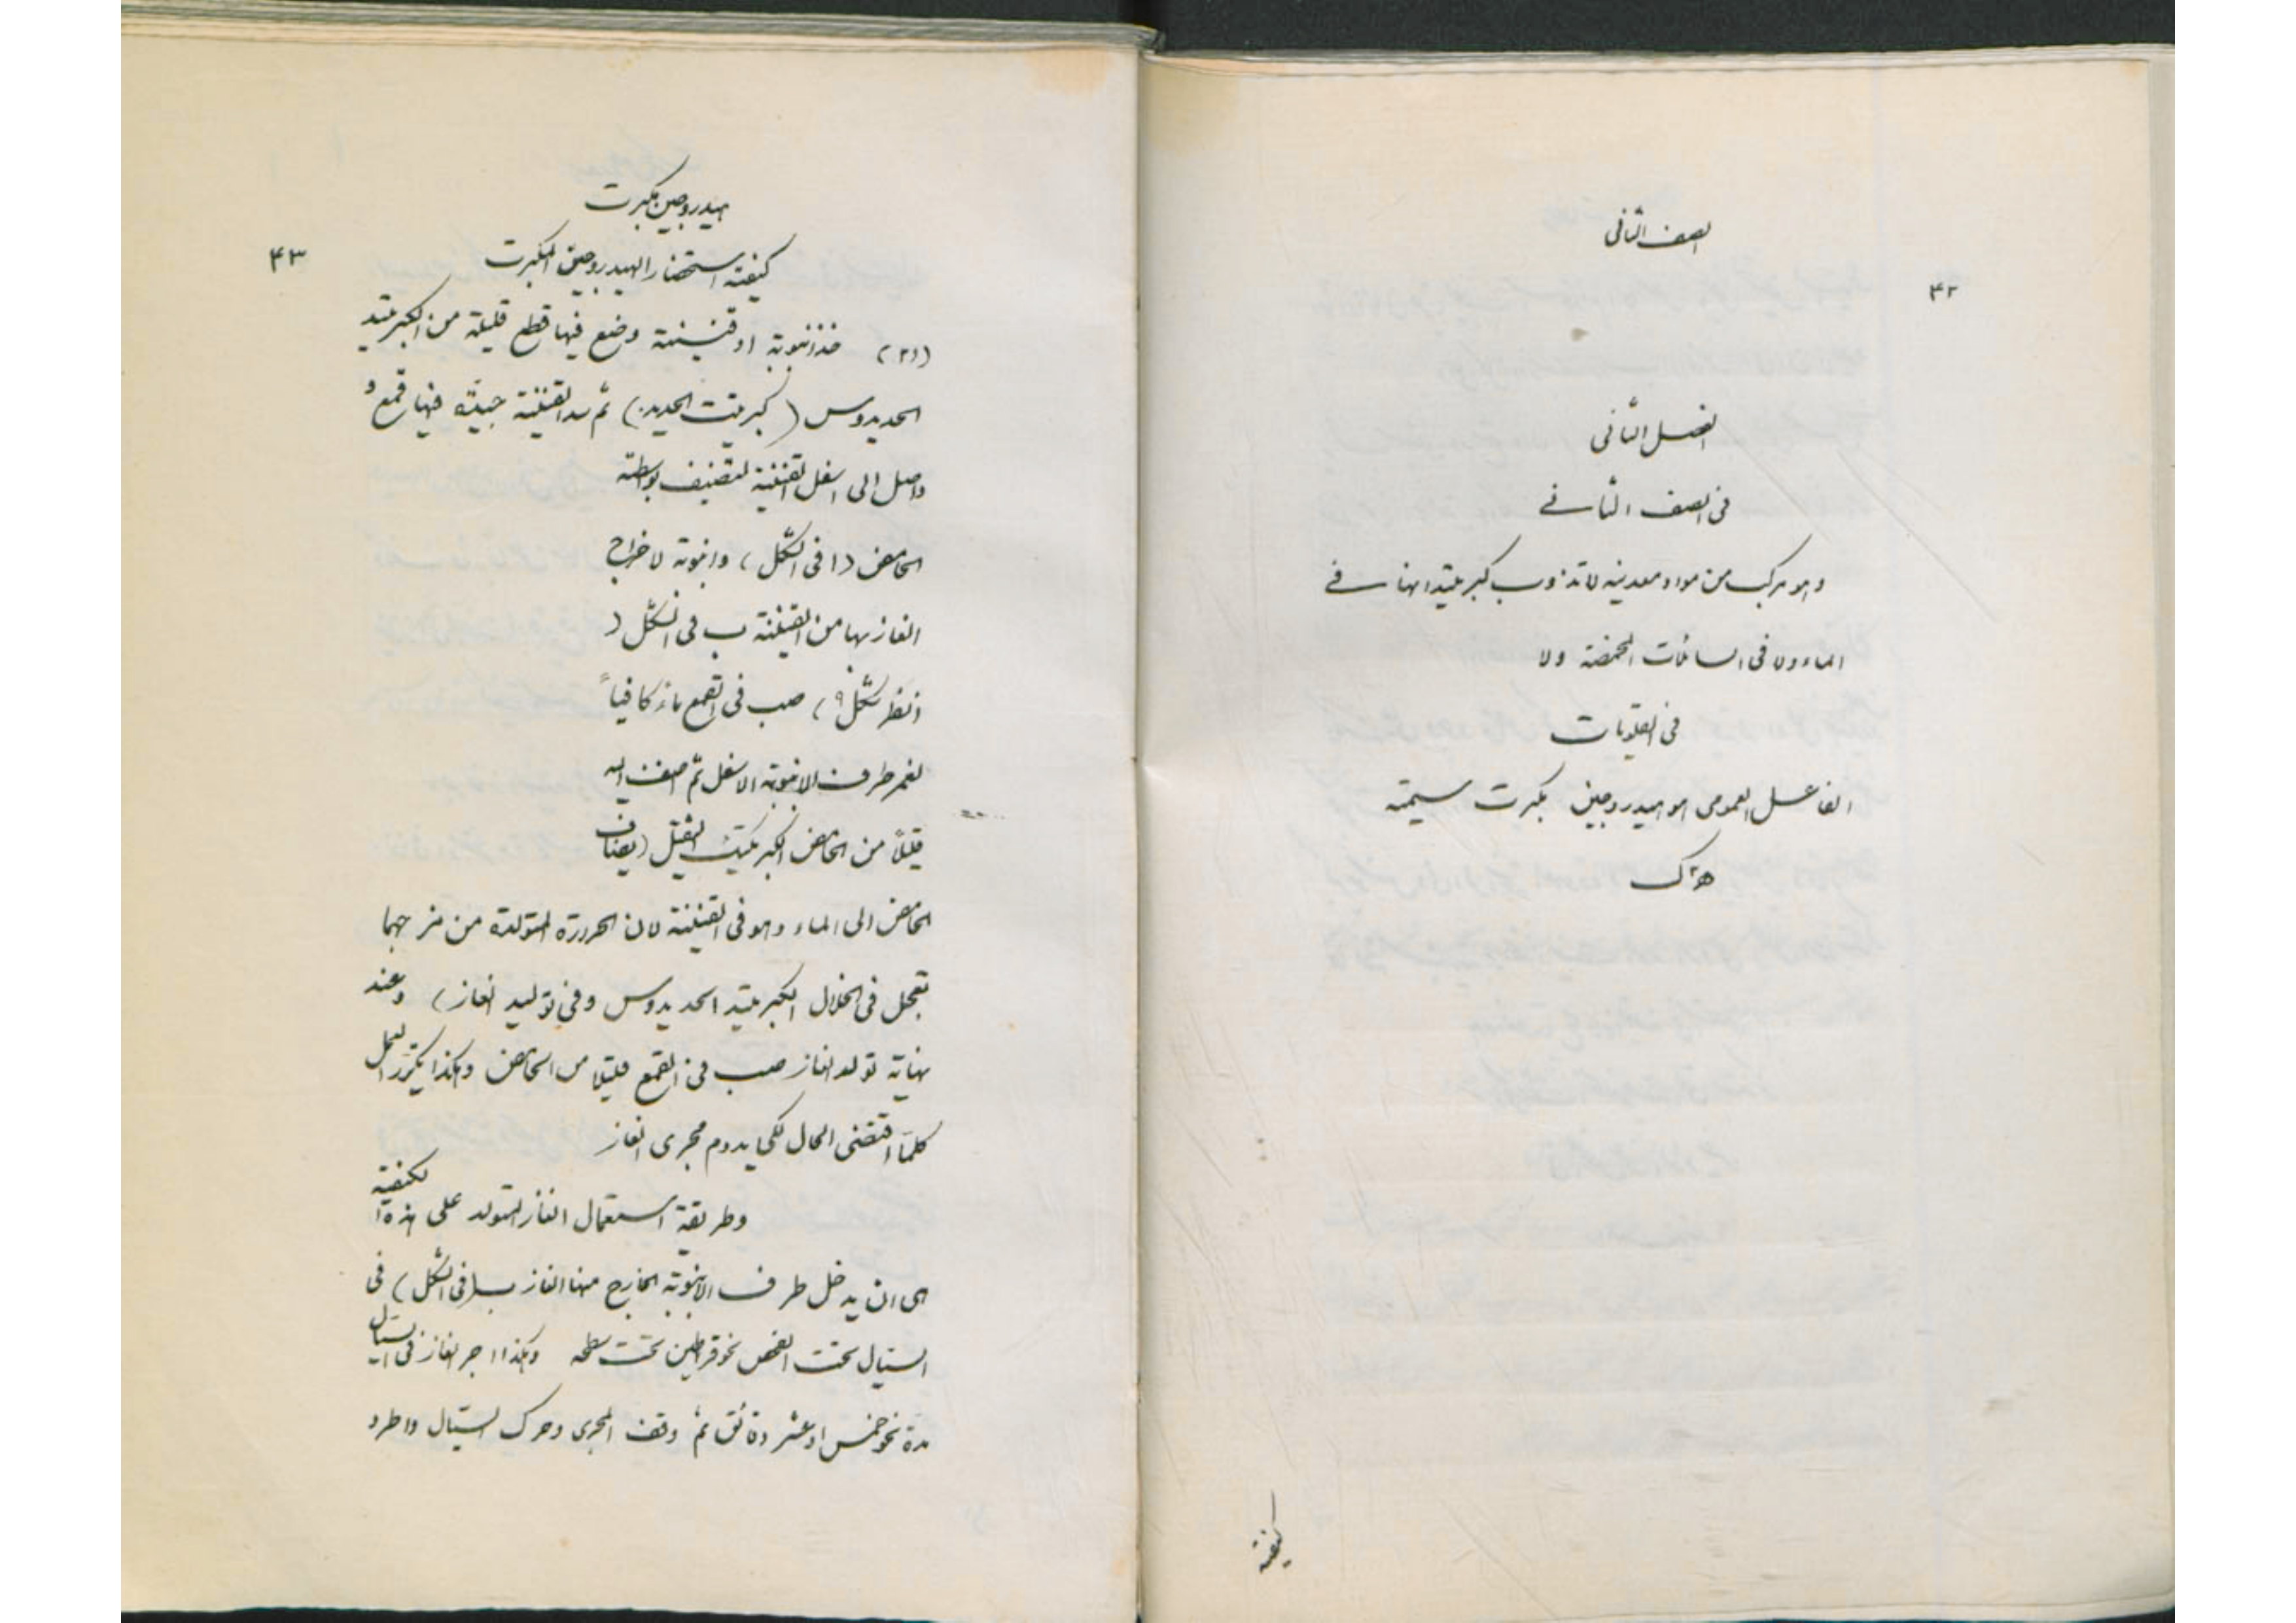 الصف الثانى
٤٢
الفصل الثانى
فى الصف الثانى
وهو مركب من مواد معدنيه لا تذوب كبريتيداتها فى
الماء ولا فى السائلات المحمضة ولا
فى القلويات
الفاعل العمومى هو هيدروجين مكبرت سيمته
ه٢ك
كيفية
هيدروجين مكبرت
٤٣
كيفية استحضار الهيدروجين المكبرت
خذ انبوبة او قنينة وضع فيها قطع قليلة من الكبريتيد
الحديدوس (كبريتت الحديد) ثم سد القنينة جيدًا فيها قمع
واصل الى اسفل القنينة لتضيف بواسطته
الحامض (ا فى الشكل) وانبوبة لاخراج
الغاز بها من القنينة ب فى الشكل (
انظر شكل ٩) صب فى القمع ماء كافياً
لغمر طرف الانبوبة الاسفل ثم اضف اليه
قليلاً من الحامض الكبريتيك الثقيل (يضاف
الحامض الى الماء وهو فى القنينة لان الحرارة المتولدة من مزجهما
تعجل فى انحلال الكبريتيد الحديدوس وفى توليد الغاز) وعند
نهاية تولد الغاز صب فى القمع قليلا من الحامض وهكذا يكرر العمل
كلما اقتضى الحال لكى يدوم مجرى الغاز
وطريقة استعمال الغاز المتولد على هذه الكيفية
هى ان يدخل طرف الانبوبة الخارج منها الغاز ب (فى الشكل) فى
السيال تحت الفحص نحو قراطين تحت سطحه وهكذا اجر الغاز فى السيال
مدة نحو خمس او عشر دقائق ثم وقف المجرى وحرك السيال واطرد